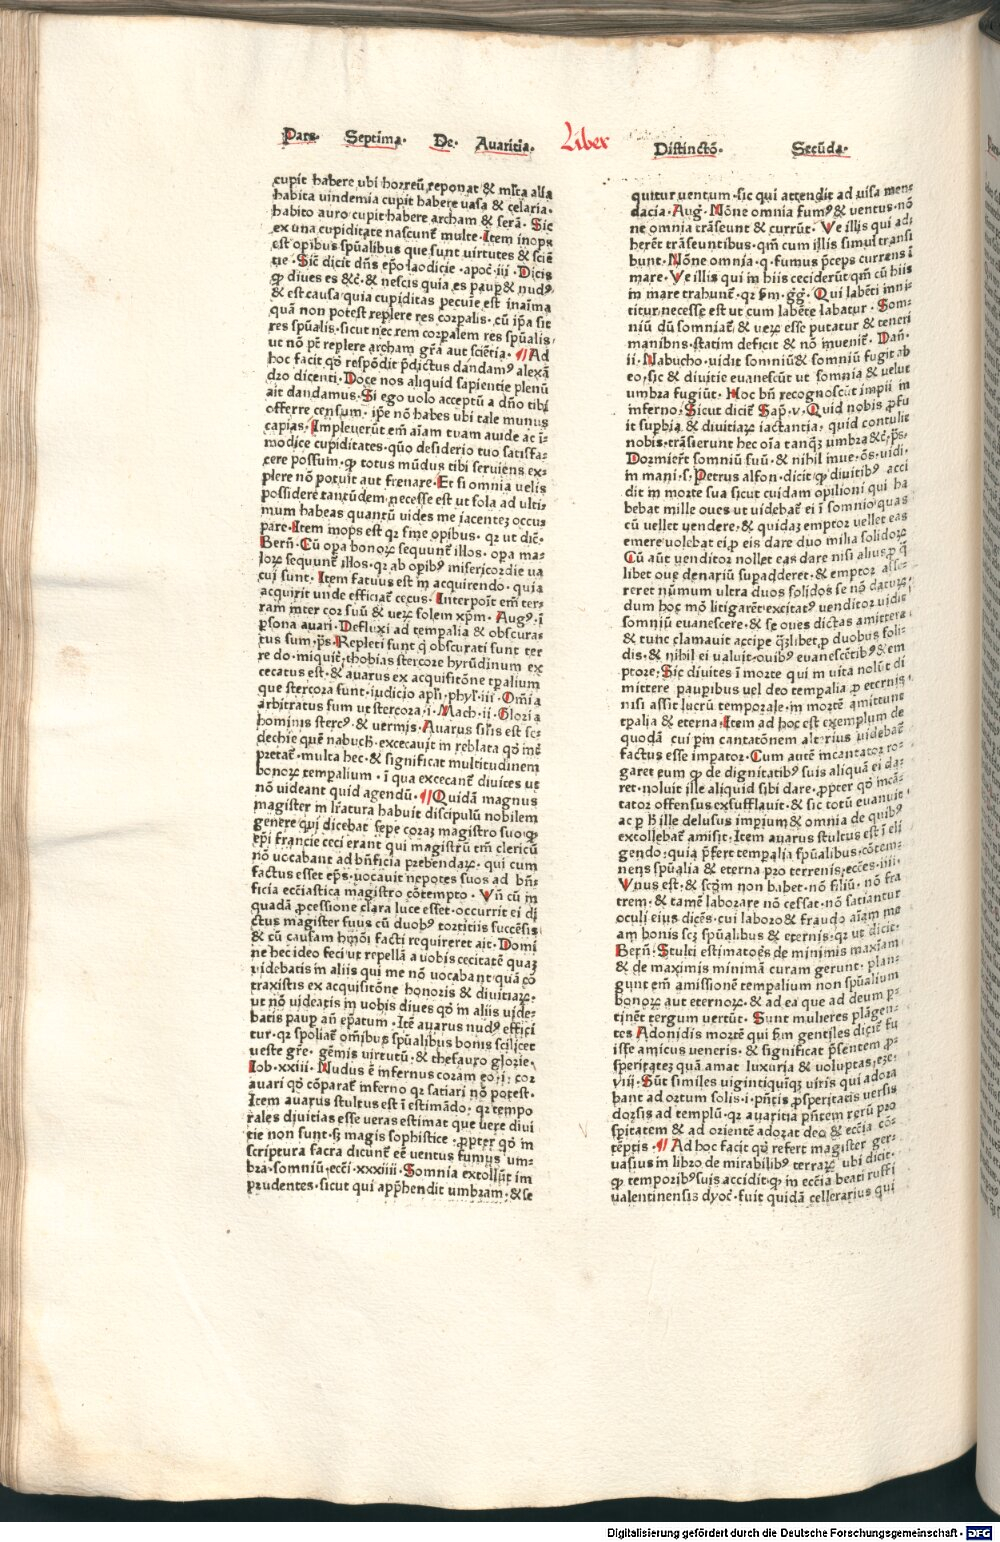 Pars· Septima· De· Avaritia· Liber Distinctō· Secūda·
cupit habere ubi horreū reponat & ml̄ta alia
habita vindemia cupit habere vasa & celaria·
habito auro cupit habere archam & serā· Sic
ex una cupiditate nascunt̄ multe· Item inops
est opibus spūalibus que sunt virtutes & sciē
tie· Sic̄ dicit dn̄s ep̄o laodicie· apoc̄·iii· Dicis
ꝙ dives es &c̄· & nescis quia es paup̄ & nudꝰ
& est causa quia cupiditas pecuīe est inaīma
quā non potest replere res corꝑalis· cū ip̄a sit
res spūalis· sicut nec rem corꝑalem res spūalis
ut nō pt̄ replere archam gr̄a aut sciētia· ¶ Ad
hoc facit qď respōdit p̄dictus dandamꝰ alexā
dro dicenti· Doce nos aliquid sapientie plenū
ait dandamus· Si ego uolo acceptū a dn̄o tibi
offerre censum· ip̄e nō habes ubi tale munus
capias· Impleverūt em̄ aīam tuam avide ac ī=
modice cupiditates· quō desiderio tuo satisfa=
cere possum· ꝙ totus mūdus tibi serviens ex=
plere nō potuit aut frenare· Et si omnia velis
possidere tantūdem necesse est ut sola ad ulti=
mum habeas quantū vides me iacenteꝫ occu=
pare· Item inops est qꝛ sine opibus· qꝛ ut dic̄·
Bern̄· Cū oꝑa bonoꝝ sequunt̄ illos· oꝑa ma=
loꝝ sequunt̄ illos· qꝛ ab opibꝰ misericordie va
cui sunt· Item fatuus est in acquirendo· quia
acquirit unde efficiat̄ cecus· Interpoit̄ em̄ ter=
ram inter cor suū & veꝝ solem xp̄m· Augꝰ· ī
ꝑsona avari· Defluxi ad temꝑalia & obscura=
tus sum· p̄s· Repleti sunt q obscurati sunt ter
re do· iniquit̄· thobias stercore hyrūdinum ex
cecatus est· & avarus ex acquisitōne tꝑalium
que stercora sunt· iudicio apl̄i· phyl̄·iii· Om̄ia
arbitratus sum ut stercora· i· Mach· ii· Gloria
hominis stercꝰ & vermis· Avarus sil̄is est se=
dechie quē nabuch̄· excecavit in reblata qď in̄t̄
p̄tat̄· multa hec· & significat multitudinem
bonoꝝ tempalium· ī qua excecant̄ divites ut
nō videant quid agendū· ¶ Quidā magnus
magister in l̄ratura habuit discipulū nobilem
genere qui dicebat sepe coraꝫ magistro suo ꝙ
ep̄i francie ceci erant qui magistrū tm̄ clericū
nō vocabant ad bn̄ficia prebendaꝝ· qui cum
factus esset ep̄s· vocavit nepotes suos ad bn̄=
ficia ecc̄iastica magistro cōtempto· Vn̄ cū in
quadā ꝓcessione clara luce esset· occurrit ei di
ctus magister suus cū duobꝰ tortitiis succēsis
& cū causam hmōi facti requireret ait· Domi
ne hec ideo feci ut repellā a vobis cecitatē quaꝫ
videbatis in aliis qui me nō vocabant quā cō
traxistis ex acquisitōne honoris & divitiaꝝ·
ut nō videatis in vobis dives qď in aliis vide=
batis paup̄ an̄ ep̄atum· Itē avarus nudꝰ effici
tur· qꝛ spoliat̄ om̄ibus spūalibus bonis scilicet
veste gr̄e· gēmis virtutū· & thesauro glorie·
Iob· xxiii· Nudus ē infernus coram eo· i· cor
avari qď cōparat̄ inferno qꝛ satiari nō potest·
Item avarus stultus est ī estimādo· qꝛ tempo
rales divitias esse veras estimat que vere divi
tie non sunt· sꝫ magis sophistice· ꝓpter qď in
scriptura sacra dicunt̄ eē ventus fumus um=
bra· somniū· ecc̄i· xxxiiii· Somnia extollūt im
prudentes· sicut qui app̄hendit umbram· & se
quitur ventum· sic qui attendit ad visa men=
dacia· Auḡ· Nōne omnia fumꝰ & ventus· nō
ne omnia trāseunt & currūt· Ve illis qui ad=
heret̄ trāseuntibus· qm̄ cum illis simul transi
bunt· Nōne omnia· q· fumus p̄ceps currens ī
mare· Ve illis qui in hiis ceciderūt qm̄ cū hiis
in mare trahunt̄· qꝛ ẜm· gg̅· Qui labēti inni=
titur necesse est ut cum labēte labatur· Som=
niū dū somniat̄· & veꝝ esse putatur & teneri
manibus· statim deficit & nō invenit̄· Dan̄·
ii· Nabucho· vidit somniū & somniū fugit ab
eo· sic & divitie evanescūt ut somnia & velut
umbra fugiūt· Hoc bn̄ recognoscūt impii in
inferno· Sicut dicit̄ Sap̄· v· Quid nobis ꝓfu
it suꝑbia & divitiaꝝ iactantia· quid contulit
nobis· trāsierunt hec oīa tanqꝫ umbra &c̄· p̄s·
Dormiert̄ somniū suū· & nihil inve· ōs· vidi·
in mani· s· Petrus alfon· dicit ꝙ divitibꝰ acci
dit in morte sua sicut cuidam opilioni qui ha
bebat mille oves ut videbat̄ ei ī somnio quas
cū vellet vendere· & quidaꝫ emptor vellet eas
emere volebat ei ꝓ eis dare duo milia solidoꝝ
Cū aūt venditor nollet eas dare nisi alius ꝓ q̄
libet ove denariū suꝑadderet· & emptor asse=
reret nūmum ultra duos solidos se nō daturꝫ
dum hoc mō litigaret̄ excitatꝰ venditor vidit
somniū evanescere· & se oves dictas amittere
& tunc clamavit accipe q̄ꝫlibet ꝓ duobus soli=
dis· & nihil ei valuit· ovibꝰ evanescētibꝰ & em
ptore· Sic divites ī morte qui in vita nolūt di
mittere pauꝑibus vel deo temꝑalia ꝓ eternis
nisi assit lucrū temporale· in mortē amittunt
tꝑalia & eterna· Item ad hoc est exemplum de
quodā cui ꝑ incantatōnem alterius videbat̄
factus esse imꝑator· Cum autē incantator ro=
garet eum ꝙ de dignitatibꝰ suis aliquā ei da=
ret· noluit ille aliquid sibi dare· ꝓpter qď incā=
tator offensus exsufflavit· & sic totū evanuit
ac ꝑ h̄ ille delusus imꝑium & omnia de quibꝰ
extollebat̄ amisit· Item avarus stultus est ī eli
gendo· quia p̄fert temꝑalia spūalibus· cōtem=
nens spūalia & eterna pro terrenis· ecc̄es· iiii·
Vnus est· & sc̄ꝺm non habet· nō filiū· nō fra
trem· & tamē laborare nō cessat· nō satiantur
oculi eius dicēs· cui laboro & fraudo aīam me
am bonis scꝫ spūalibus & eternis· qꝛ ut dicit·
Bern̄· Stulti estimatoēs de minimis maxīam
& de maximis minimā curam gerunt· plan=
gunt em̄ amissionē temꝑalium non spūalium
bonoꝝ aut eternoꝝ· & ad ea que ad deum ꝑ=
tinēt tergum vertūt· Sunt mulieres plāgen=
tes Adonidis mortē qui ẜm gentiles dicit̄ fu
isse amicus veneris· & significat p̄sentem ꝓ=
speritateꝫ quā amat luxuria & voluptas· eze·
viii· Sūt similes vigintiquīqꝫ viris qui adora
bant ad ortum solis· i· pn̄tis ꝓsperitatis versis
dorsis ad templū· qꝛ avaritia pn̄tem rerū pro
speritatem & ad orientē adorat deo & ecc̄ia cō=
tēptis· ¶ Ad hoc facit qď refert magister ger=
vasius in libro de mirabilibꝰ terraꝝ ubi dicit·
ꝙ temporibꝰ suis accidit ꝙ in ecc̄ia beati ruffi
valentinensis dyoc̄· fuit quidā cellerarius qui
Digitalisierung gefördert durch die Deutsche Forschungsgemeinschaft - DFG